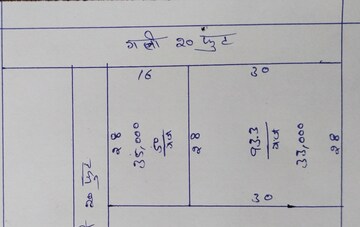 गली 20 फुट
16
30
28
35,000
50
गज
28
93.3
गज
33,000
28
20 फुट
30